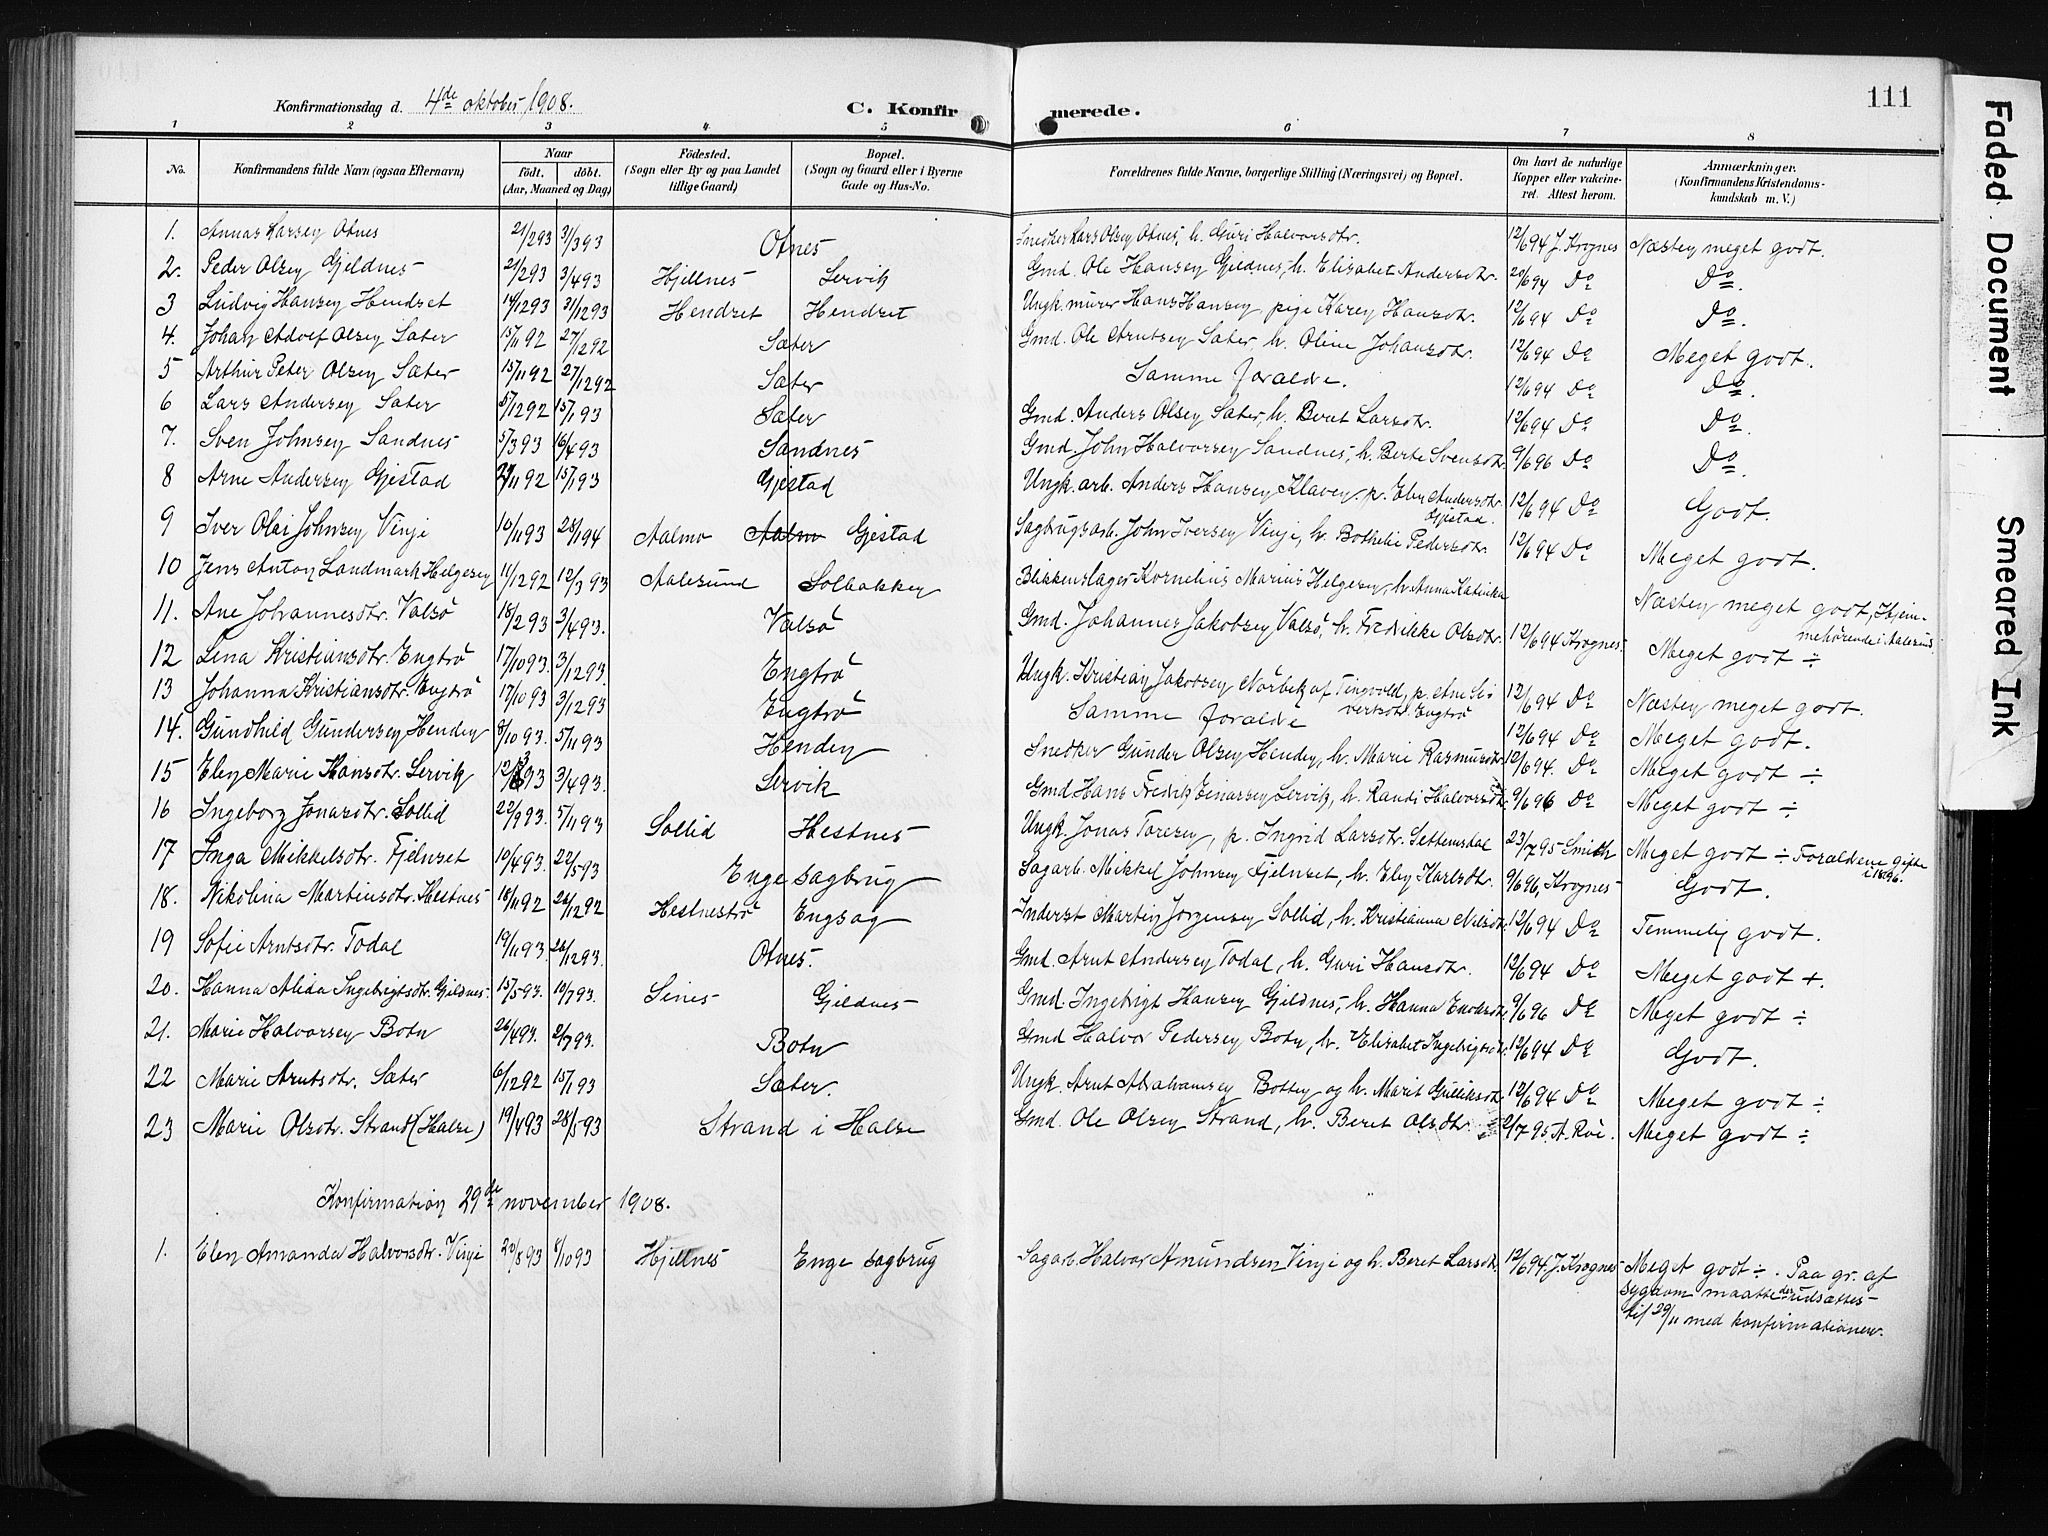 111
Konfirmationsdag d. 4de oktober 1908.
C. Konfir merede.
1 2 3 4 5 6 7 8
No. Konfirmandens fulde Navn (ogsaa Efternavn) Naar födt. döbt. (Aar, Maaned og Dag) Födested. (Sogn eller By og paa Landet tillige Gaard) Bopæl. (Sogn og Gaard eller i Byerne Gade og Hus-No. Forældrenes fulde Navne, borgerlige Stilling (Næringsvei) og Bopæl. Om havt de naturlige Kopper eller vakcineret. Attest herom. Anmærkninger. (Konfirmandens Kristendomskundskab m. V.)
1. Larsen Otnes 21/2 93 3/3 93 Otnes Snedker Lars Olsen Otnes, h. Guri Halvorsdtr. 12/6 94 J. Krognes Næsten meget godt.
2. Peder Olsen Gjeldnes 21/2 93 3/4 93 Hjellnes Servik Gmd. Ole Hansen Gjeldnes, h. Elisabet Andersdtr. 20/6 94 Do Do.
3 Ludvig Hansen Hendset 14/12 93 31/12 93 Hendset Hendset Ungk. murer Hans Hansen, pige Karen Hansdtr. 12/6 94 Do Do.
4. Johan Adolf Olsen Sæter 15/11 92 27/12 92 Sæter Gmd. Ole Arntsen Sæter, h. Oline Johansdtr. 12/6 94 Do Meget godt.
5 Arthur Peter Olsen Sæter 15/11 92 27/12 92 Sæter Samme forældre. 12/6 94 Do Do.
6 Lars Andersen Sæter 5/12 92 15/1 93 Sæter Gmd. Anders Olsen Sæter, h. Beret Larsdtr. 12/6 94 Do Do.
7. Sven Johnsen Sandnes 5/3 93 16/4 93 Sandnes Gmd. John Halvorsen Sandnes, h. Berte Svensdtr. 9/6 96 Do Do.
8 Arne Andersen Gjestad 27/11 92 15/1 93 Gjestad Ungk. arb. Anders Hansen Klaven, p. Elen Andersdtr. Gjestad. 12/6 94 Do Godt.
9 Iver Olai Johnsen Vinje 10/11 93 28/1 94 Aalmo Aalmo Gjestad Sagbrugsarb. John Iversen Vinje, h. Bothilie Pedersdtr. 12/6 94 Do Meget godt.
10 Jens Anton Landmark Helgesen 11/12 92 12/3 93 Aalesund Solbakken Blikkenslager Kornelius Marius Helgesen, h. Anna Katinka Næsten meget godt, Hjemmehørende i Aalesund.
11. Ane Johannesdtr. Valsö 18/2 93 3/4 93. Valsö Gmd. Johannes Jakobsen Valsö, h. Fredrikke Olsdtr. 12/6 94 Krognes. Meget godt ÷
12 Lina Kristiansdtr. Engtrö 17/10 93. 3/12 93. Engtrö Ungk. Kristian Jakobsen Nörbek af Tingvold, p. Ane Sivertsdtr. Engtrö 12/6 94 Do Næsten meget godt.
13 Johanna Kristiansdtr. Engtrö 17/10 93 3/12 93 Engtrö Samme forældre 12/6 94 Do Meget godt.
14. Gundhild Gundersen Henden 8/10 93. 5/11 93 Henden Snedker Gunder Olsen Henden, h. Marie Rasmusdtr. 12/6 94. Do Meget godt ÷
15 Elen Marie Hansdtr. Servik 12/3 93 3/4 93. Servik Gmd Hans Fredrik Einarsen Servik, h. Randi Halvorsdtr. 9/6 96 Do Meget godt ÷
16 Ingeborg Jonasdtr. Sollid 22/9 93. 5/11 93 Sollid Hestnes Ungk. Jonas Toresen, p. Ingrid Larsdtr. Settemsdal 23/7 95 Smith Meget godt ÷ Forældrene gifte i 1896.
17 Inga Mikkelsdtr. Fjelnset 10/4 93. 22/5 93 Enge sagbrug Sagarb. Mikkel Johnsen Fjelnset, h. Elen Karlsdtr. 9/6 96, Krognes Godt.
18. Nikolina Martinsdtr. Hestnes 18/11 92 26/12 92 Hestneströ Engsag Inderst Martin Jörgensen Sollid, h. Kristianna Nilsdtr. 12/6 94 Do Temmelig godt.
19 Sofie Arntsdtr. Todal 19/11 93. 26/12 93. Otnes. Gmd. Arnt Andersen Todal, h. Guri Hansdtr. 12/6 94 Do Meget godt +.
20. Hanna Alida Ingebrigtsdtr. Gjeldnes 15/5 93. 10/7 93. Sines Gjeldnes Gmd. Ingebrigt Hansen Gjeldnes, h. Hanna 9/6 96 Do Meget godt ÷
21. Marie Halvorsen Botn 26/4 93. 2/7 93. Botn Gmd Halvor Pedersen Botn, h. Elisabet Ingebrigtsdtr. 12/6 94 Do Godt.
22 Marie Arntsdtr. Sæter 6/12 92 15/1 93 Sæter. Ungk. Arnt Abrahamsen Botten og h. Marit Gulliksdtr 12/6 94 Do Meget godt ÷
23 Marie Olsdtr. Strand (Halse) 19/4 93 28/5 93 Strand i Halse Gmd. Ole Olsen Strand, h. Beret Olsdtr. 2/7 95 A. Röe. Meget godt ÷
Konfirmation 29de november 1908.
1. Elen Amanda Halvorsdtr. Vinje 20/8 93 8/10 93 Hjellnes Enge sagbrug Sagarb. Halvor Amundsen Vinje og h. Beret Larsdtr. 12/6 94. J. Krognes Meget godt ÷. Paa gr. af
sygdom maatte der udsættes
til 29/11 med konfirmationen.
Faded Document
Smeared Ink